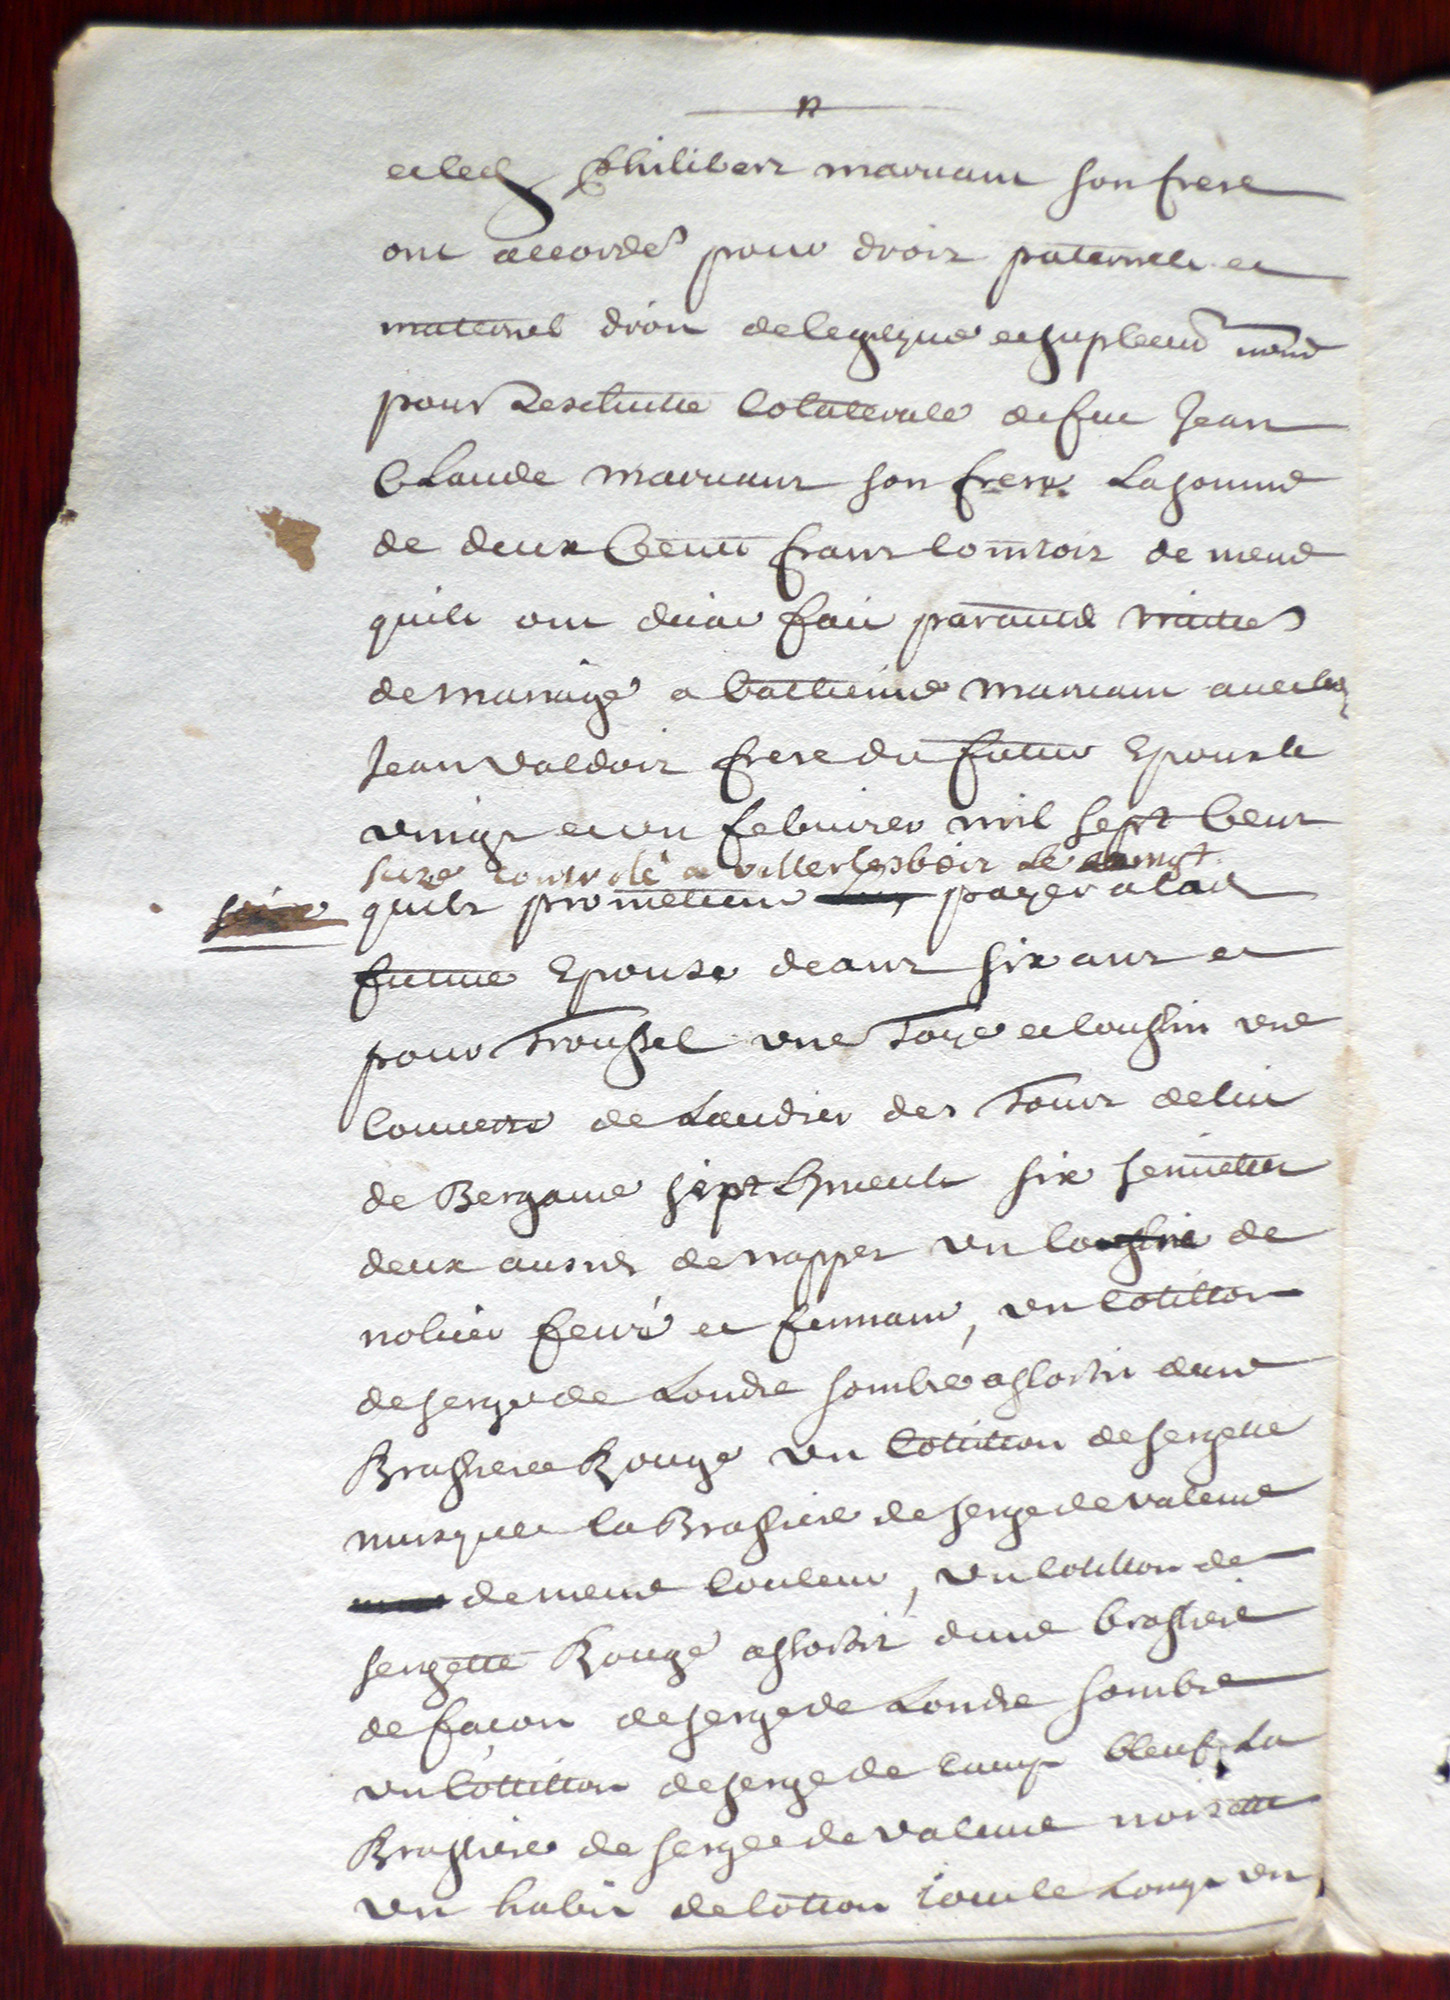 et led Philibert marvant son frere
ont accordé pour droit paternele et
maternel droit de legitime et suplem mme
pour Lescheutte Colaterale de feu Jean
Claude marvant son frere Lasomme
de deux Cent franc Comtoir de meme
quils ont deia fait par
de mariage a Catherine marvant avec led
Jean valdoir frere du futur Epoux le
vingt et un febvrier mil sept Cent
seize controlé a villersesboir Le vingt
seize quils promettent payer a lad
future Epouse de ans six ans et
pour Troussel une Toye et Coussin une
Couverte de Laudier des Tour de lit
de Bergame sept Linceuls six serviettes
deux aunes de nappes un Coffre de
nohier ferré et fermant, un Cotillon
de serge de Londre sombre assorti dune
Brassiere Rouge un Cotillon de sergette
musquee la Brassiere de serge de valence
de meme Couleur, un Cotillon de
sergette Rouge assorti dune brassiere
de façon de serge de Londre sombre
un Cottillon de serge de Camp bleuf La
Brassiere de serge de valence noisette
un habit de Cotton tout le Long un